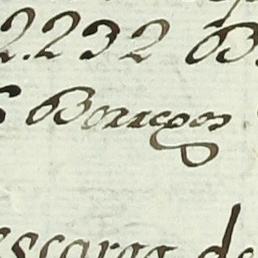 2.232 B
Borregos
escargo de